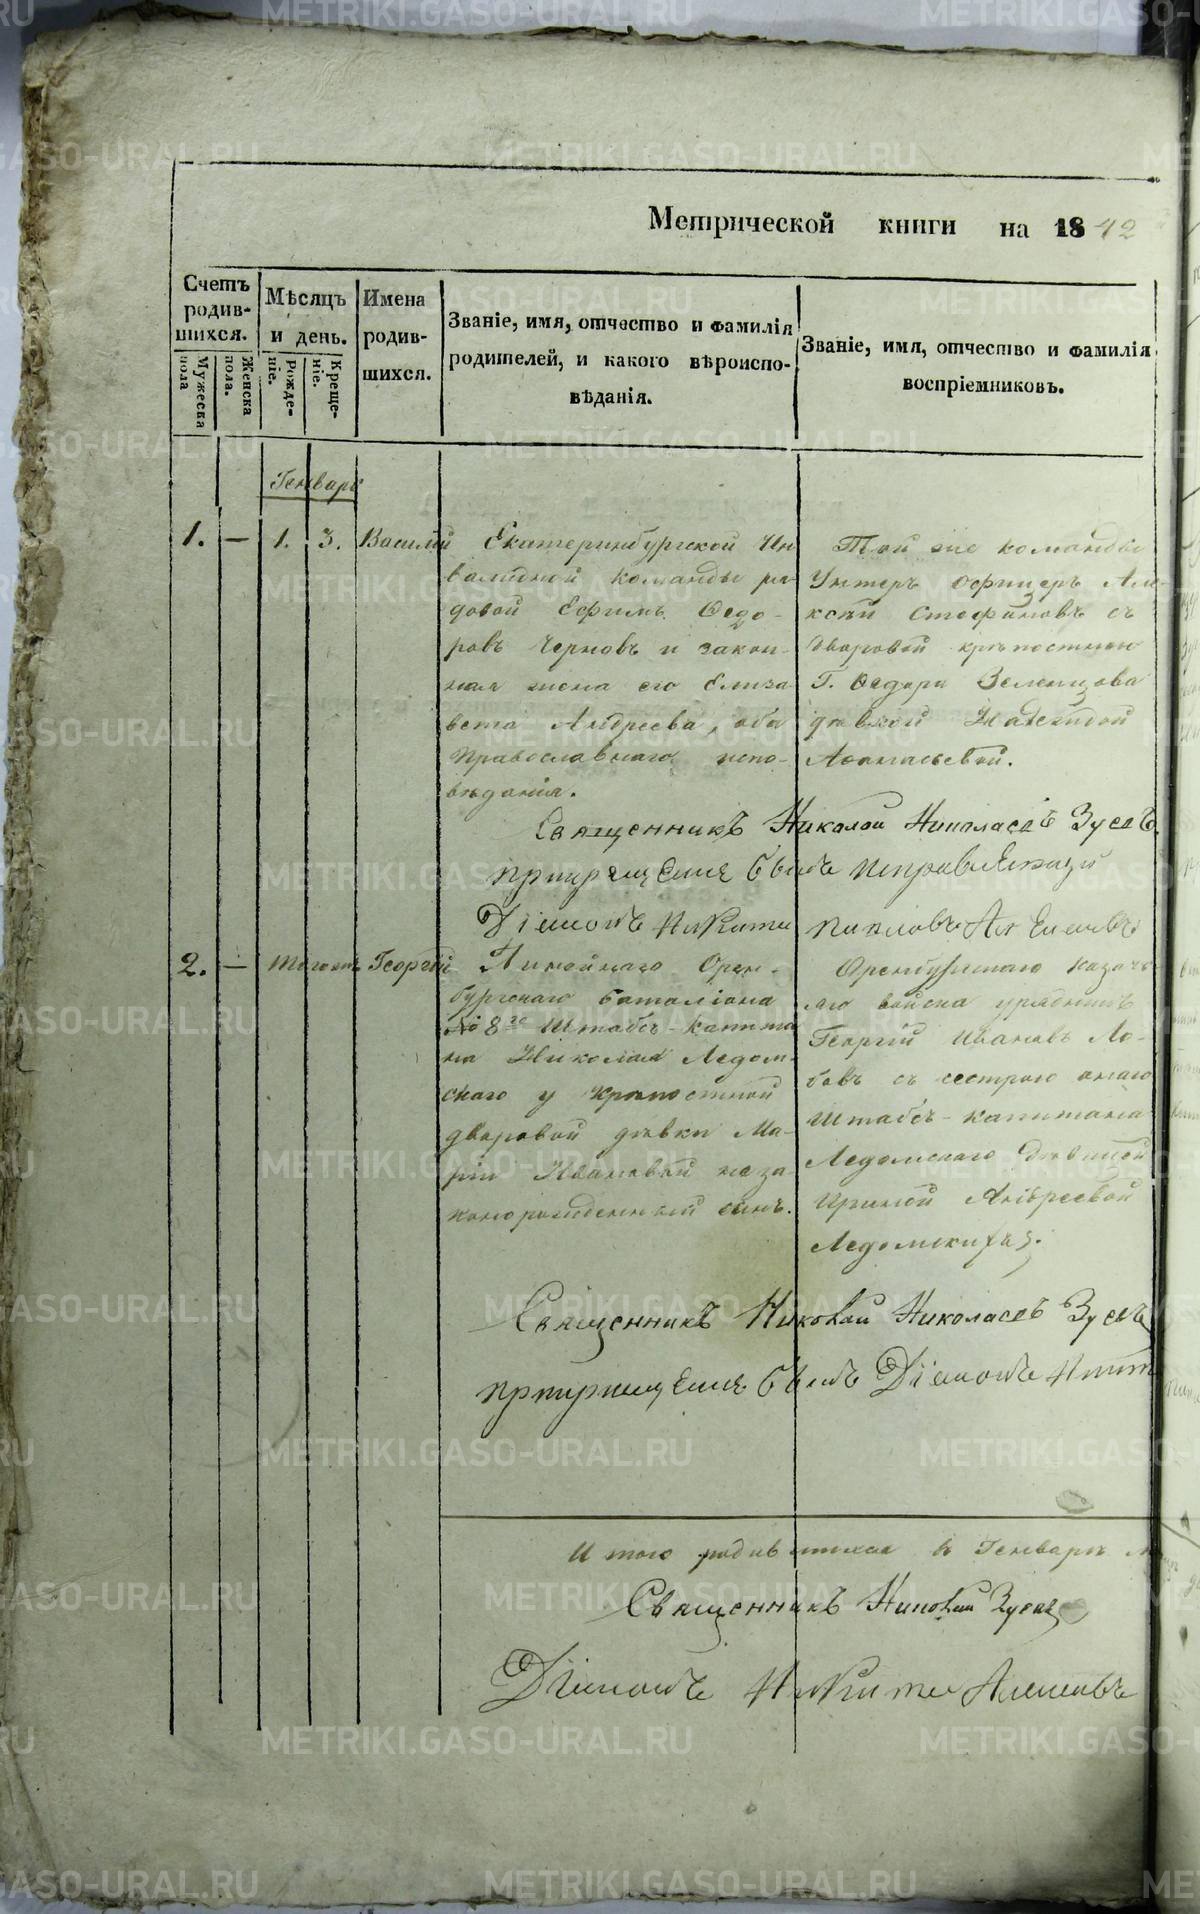 Метрической книги на 1842
Счетъ родив-шихся.
Мужеска пола
Женска пола.
Мѣсяцъ и день.
Рожде-ніе.
Креще-ніе.
Имена родив-шихся.
Званіе, имя, отчество и фамилія
родителей, и какого вѣроиспо-
вѣданія.
Званіе, имя, отчество и фамилія
воспріемниковъ.
Генварь
1. — 1. 3. Василій
Екатеринбургской Ин
валидной команды ря-
довой Ефимъ Ѳедо-
ровъ Черновъ и закон-
ная жена его Елиза-
вета Андреева, оба
Православнаго испо-
вѣданія.
Той же команды
Унтеръ офицеръ Але-
ксѣй Стефановъ с
дворовой крѣпостною
Г. Ѳедора Зеленцова
дѣвкой Надеждой
Аѳанасьевой.
Священникъ Николай Николаевъ Зуевъ
при крещеніи былъ исправляющій
Діаконъ Никита Павловъ
2. — тогожъ Георгій
Линейнаго Орен-
бургскаго баталіона
№ 8го Штабсъ-капита
на Николая Ледом-
скаго у крѣпостной
дворовой дѣвки Ма-
ріи Ивановой неза-
коннорожденный сынъ.
Оренбургскаго казачь-
яго войска урядникъ
Георгій Ивановъ Ло-
бовъ съ сестрою онаго
Штабсъ-капитана
Ледомскаго дѣвицей
Ириной Андреевой
Священникъ Николай Николаевъ Зуевъ
при крещеніи былъ Діаконъ
Итого родившихся в Генварѣ
Священникъ Николай Зуевъ
Діаконъ Никита
METRIKI.GASO-URAL.RU